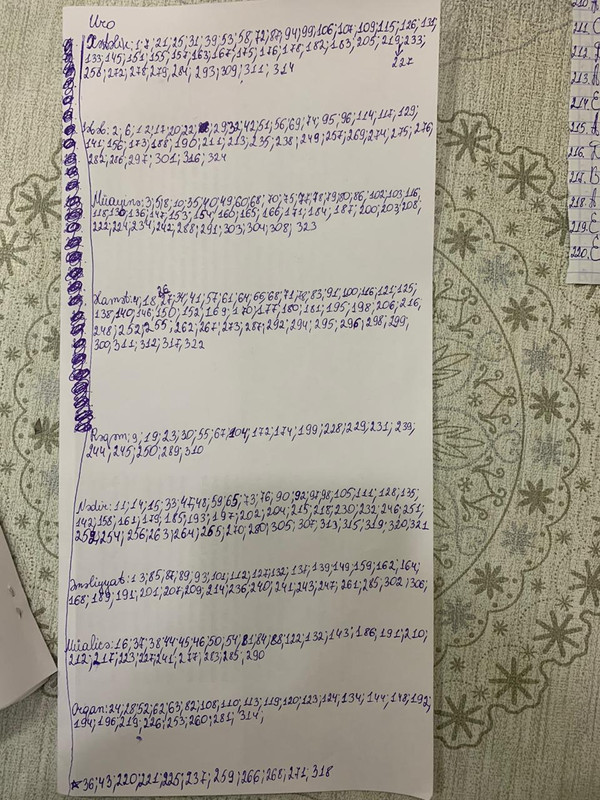 Uro
1;7;21;25;31;39;53;58;72;87;94;99;106;107;109;115;126;131;
133;145;151;155;157;163;167;175;176;178;182;183;205;219;233;
227
258;272;278;279;284;293;309;311;314
2;6;12;17;20;22;29;32;42;51;56;69;74;95;96;114;117;129;
141;156;173;188;190;211;213;235;238;249;257;269;274;275;276;
282;286;297;301;316;324
Müayinə:3;5;8;10;35;40;49;60;68;70;75;77;78;79;80;86;102;103;116;
118;130;136;147;153;154;160;165;166;171;184;187;200;203;208;
222;224;234;242;288;291;303;304;308;323
26
4;18;27;34;41;57;61;64;66;68;71;78;83;91;100;116;121;125;
138;140;146;150;152;169;170;177;180;181;195;198;206;216;
248;252;255;262;267;273;287;292;294;295;296;298;299;
300;311;312;317;322
Rəqəm:9;19;23;30;55;67;104;172;174;199;228;229;231;239;
244;245;250;289;310
Nədir:11;14;15;33;47;48;59;65;73;76;90;92;97;98;105;111;128;135;
142;158;161;179;185;193;197;202;204;215;218;230;232;246;251;
252;254;256;263;264;265;270;280;305;307;313;315;319;320;321
Əməliyyat:13;85;87;89;93;101;112;127;132;137;139;149;159;162;164;
168;189;191;201;207;209;214;236;240;241;243;247;261;285;302;306;
Müalicə:16;37;38;44;45;46;50;54;81;84;88;122;132;143;186;191;210;
212;217;223;227;241;277;283;285;290
Orqan:24;28;52;62;63;82;108;110;113;119;120;123;124;134;144;148;192;
194;196;219;226;253;260;281;314;
36;43;220;221;225;237;259;266;268;271;318
210.
211.
212.
213.
214.E
215.
216.
217.B
218.A
219.E
220.